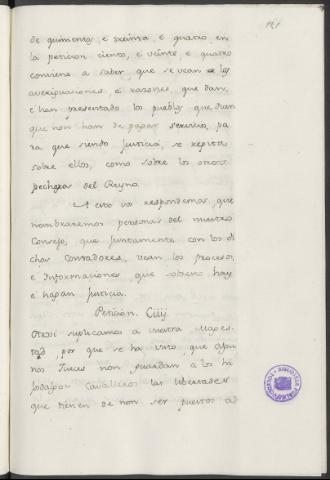 121
de quinientos, e treinta e quatro en
la peticion ciento, e veinte e quatro
conviene a saber que se vean las
averiguaciones, e razones, que dan,
e han presentado los pueblos que dizen
que non han de pagar servicio, pa
ra que siendo Justicia, se reparta
sobre ellos, como sobre los otros
pecheros del Reyno.
A esto vos respondemos, que
nombraremos personas del nuestro
Consejo, que juntamente con los di
chos Contadores, vean los procesos,
e Informaciones que sobrello hay
e hagan Justicia.
Peticion. Ciiij.
Otrosi suplicamos a vuestra Mages
tad por que se ha visto que algu
nos Jueces non guardan a los hi
josdalgo Cavalleros las libertades
que tienen de non ser puestos a
BIBLIOTECA